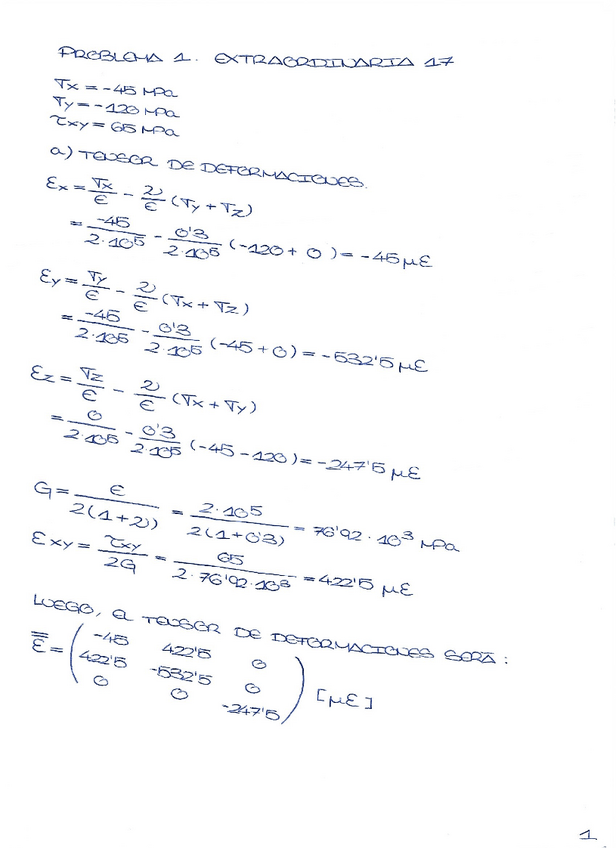 PROBLEMA 1. EXTRAORDINARIA 17
σx = -45 MPa
σy = -120 MPa
τxy = 65 MPa
a) TENSOR DE DEFORMACIONES.
εx = σx/E - ν/E (σy + σz)
= -45/2·10^5 - 0'3/2·10^5 (-120 + 0) = -45 με
εy = σy/E - ν/E (σx + σz)
= -45/2·10^5 - 0'3/2·10^5 (-45 + 0) = -532'5 με
εz = σz/E - ν/E (σx + σy)
= 0/2·10^5 - 0'3/2·10^5 (-45 - 120) = -247'5 με
G = E/2(1+ν) = 2·10^5/2(1+0'3) = 76'92·10^3 MPa
εxy = τxy/2G = 65/2·76'92·10^3 = 422'5 με
LUEGO, EL TENSOR DE DEFORMACIONES SERÁ:
-45 422'5 0
ε = 422'5 -532'5 0 [με]
0 0 -247'5
1